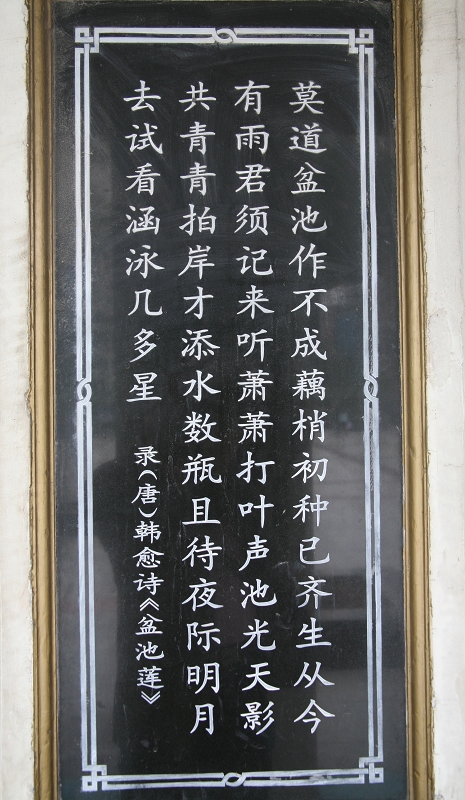 莫道盆池作不成藕梢初种已齐生从今
有雨君须记来听萧萧打叶声池光天影
共青青拍岸才添水数瓶且待夜际明月
去试看涵泳几多星
录(唐)韩愈诗《盆池莲》